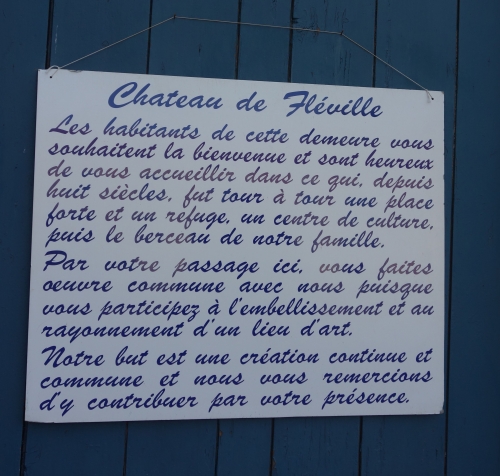 Chateau de Fléville
Les habitants de cette demeure vous
souhaitent la bienvenue et sont heureux
de vous accueillir dans ce qui, depuis
huit siècles, fut tour à tour une place
forte et un refuge, un centre de culture,
puis le berceau de notre famille.
Par votre passage ici, vous faites
oeuvre commune avec nous puisque
vous participez à l'embellissement et au
rayonnement d'un lieu d'art.
Notre but est une création continue et
commune et nous vous remercions
d'y contribuer par votre présence.